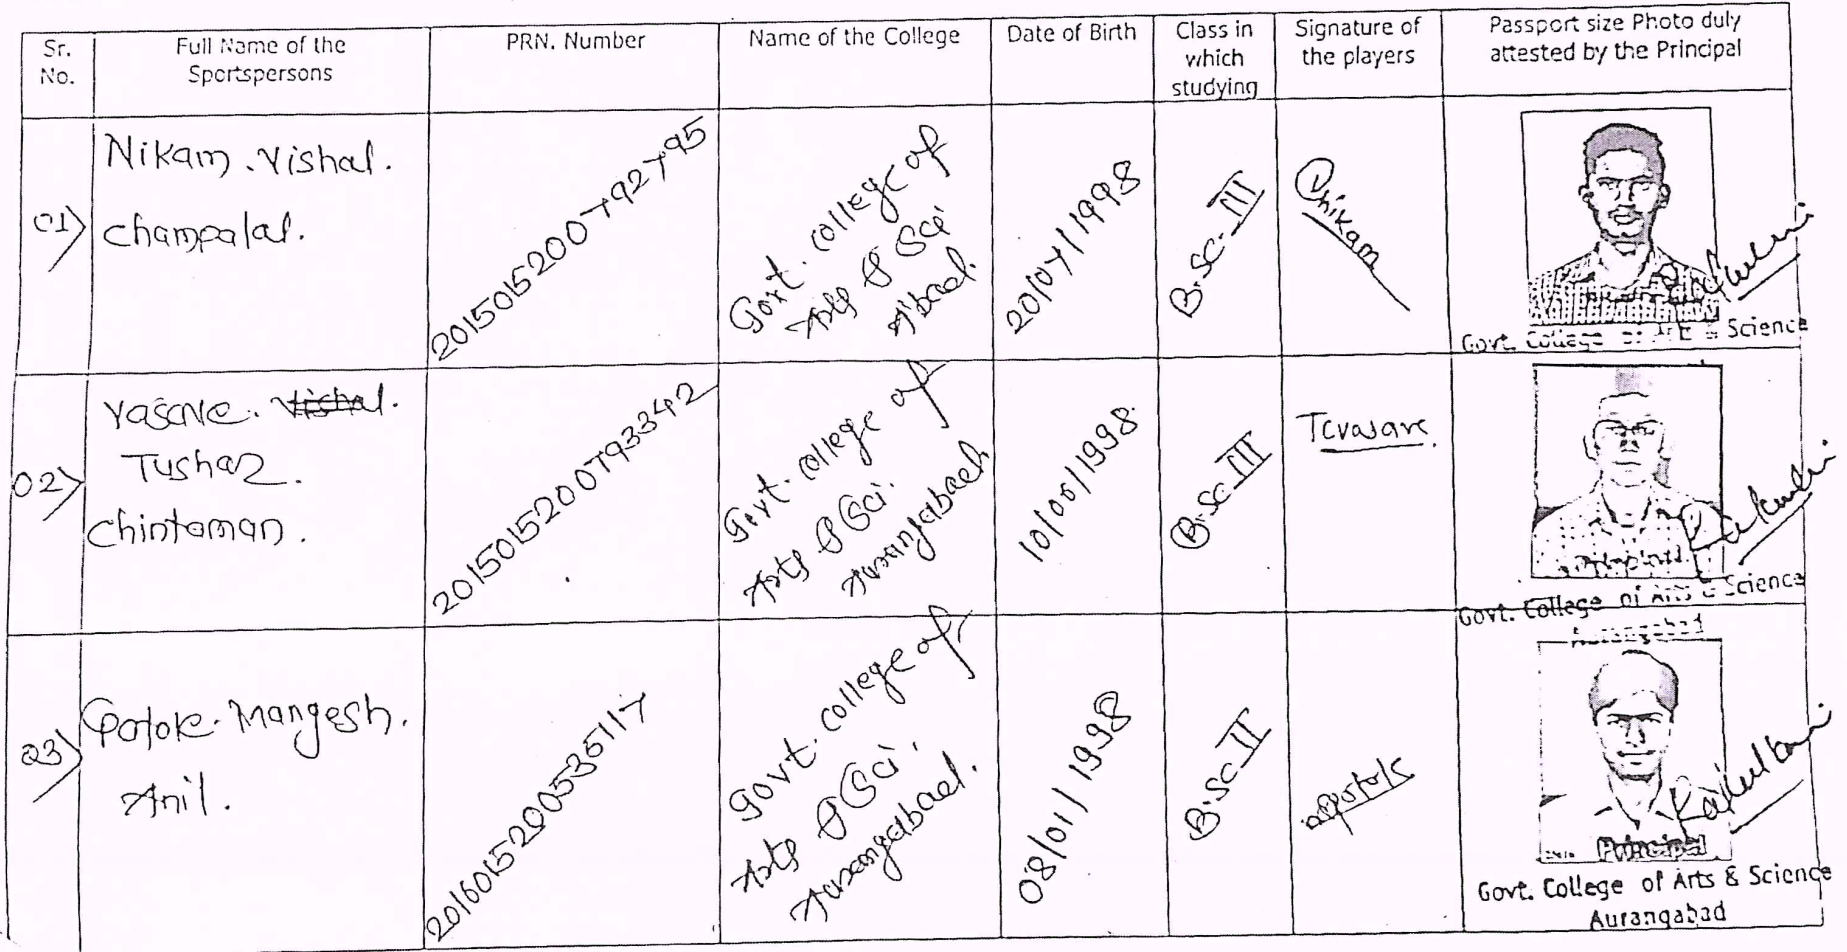 Sr. No.
Full Name of the Sportspersons
PRN. Number
Name of the College
Date of Birth
Class in which studying
Signature of the players
Passport size Photo duly attested by the Principal
01)
Nikam . Vishal.
Champalal.
2015015200792795
Govt. College of
Arts & Sci
A'bad.
20/07/1998
B.Sc. III
Nikam
Govt. College of & Science
02)
Vasave. Vishal.
Tushar.
Chintaman.
2015015200793342
Govt. College of
Arts & Sci.
Aurangabad
10/06/1998.
B.Sc III
Tcvasave.
Govt. College of Arts & Science
Aurangabad
03)
Mangesh.
Anil.
2016015200535117
Govt. College of
Arts & Sci.
Aurangabad.
08/01/1998
B.Sc II
Principal
Govt. College of Arts & Science
Aurangabad